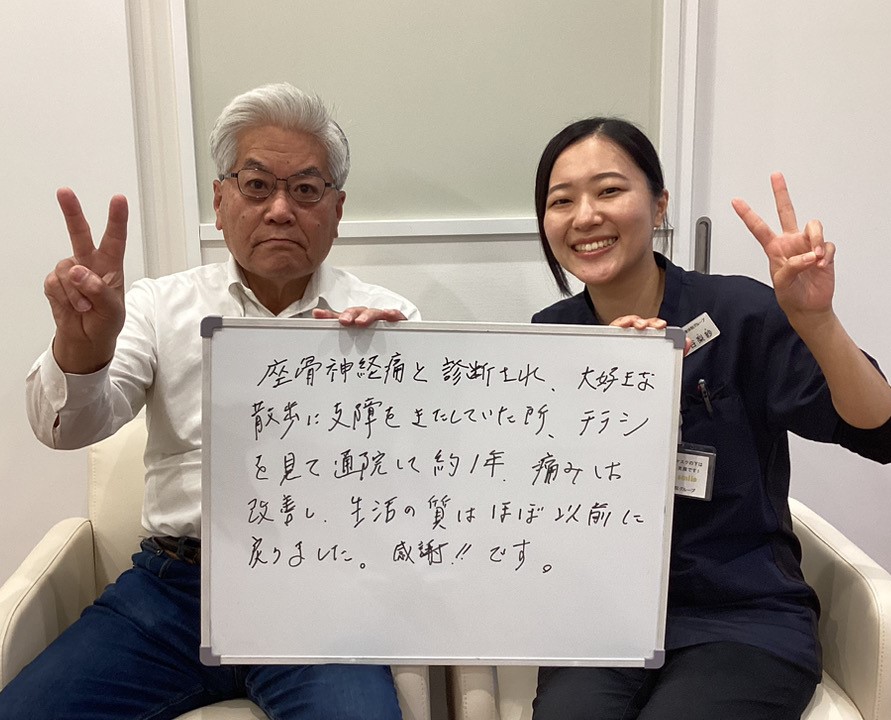 座骨神経痛と診断され、大好きな
散歩に支障をきたしていた所、チラシ
を見て通院して約1年、痛みは
改善し、生活の質はほぼ以前に
戻りました。感謝!!です。